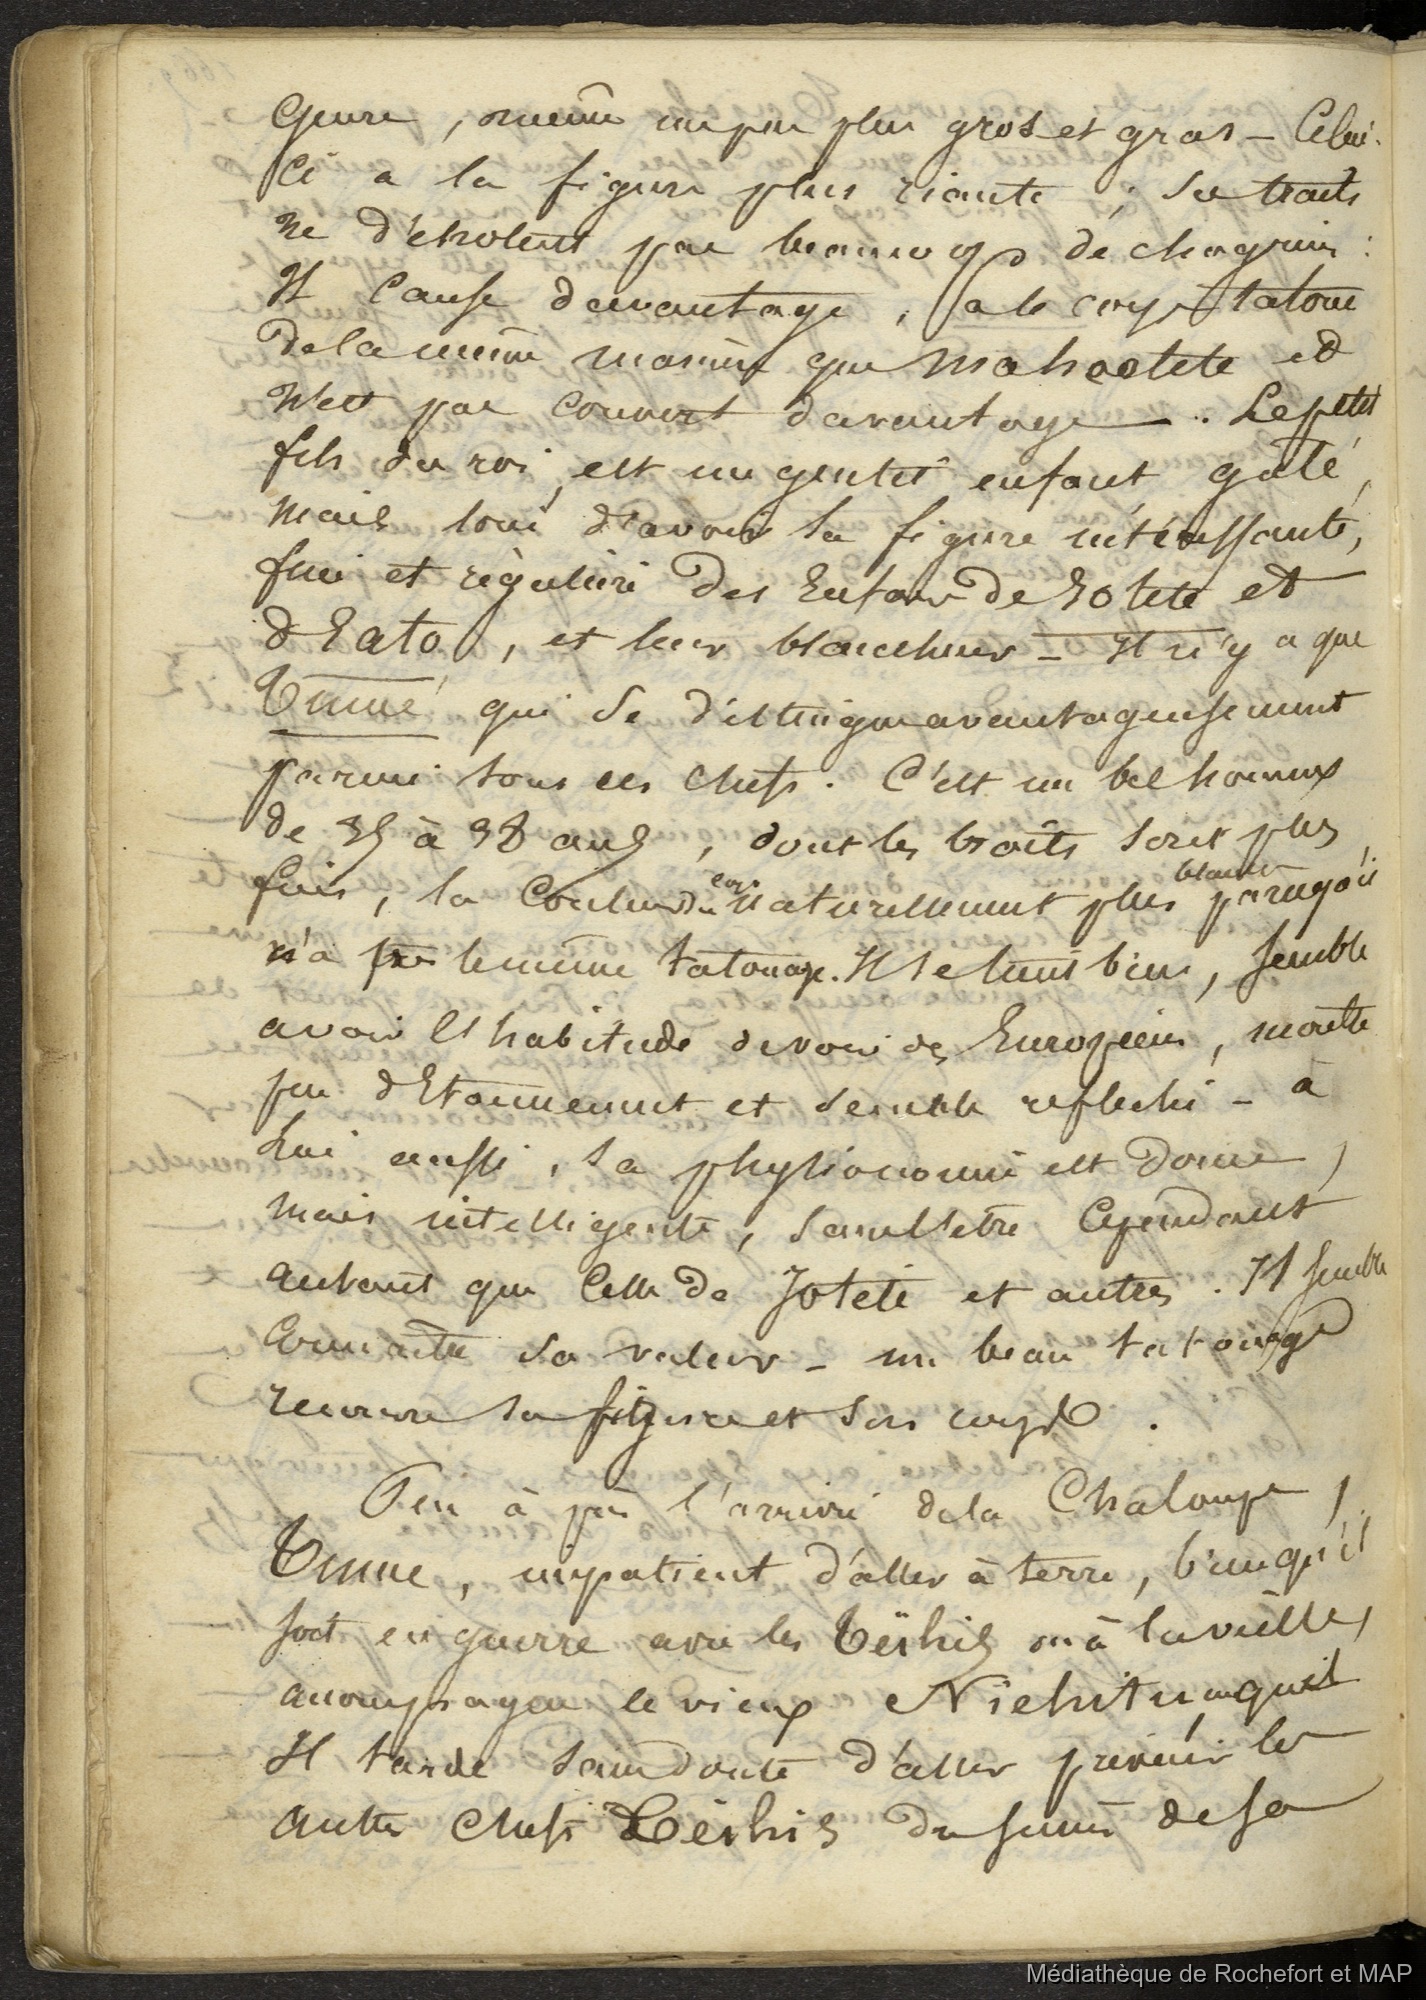 Genre, même un peu plus gros et gras – Celui-
ci a la figure plus riante ; ses traits
ne dénotent pas beaucoup de chagrin :
Il cause davantage, a le corps tatoué
de la même manière que Maheatete et
n'est pas couvert davantage – . Le petit
fils du roi, est un gentil enfant gâté,
mais loin d'avoir la figure intéressante,
fine et régulière des Enfans de Iotété et
d'Eato, et leur blancheur – Il n'y a que
Timé qui se distingue avantageusement
parmi tous ces chefs. C'est un bel homme
de 35 à 38 ans, dont les traits sont plus
fins, la Couleur du corps naturellement plus blanche parcequ'il
n'a pas le même tatouage. Il se tient bien, semble
avoir l'habitude de voir des Européens, montre
peu d'Etonnement et semble reflechi – à
Lui aussi, sa physionomie est douce,
mais intelligente, sans l'être Cependant
autant que Celle de Jotété et autres. Il semble
Connaitre sa valeur – un beau tatouage
recouvre sa figure et son corps.
Peu après l'arrivée de la Chaloupe,
Timé, impatient d'aller à terre, bien qu'il
soit en guerre avec les Teïhis ou à la veille,
accompagne le vieux Niehitu auquel
Il tarde sans doute d'aller prévenir les
autres chefs Teïhis du succès de sa